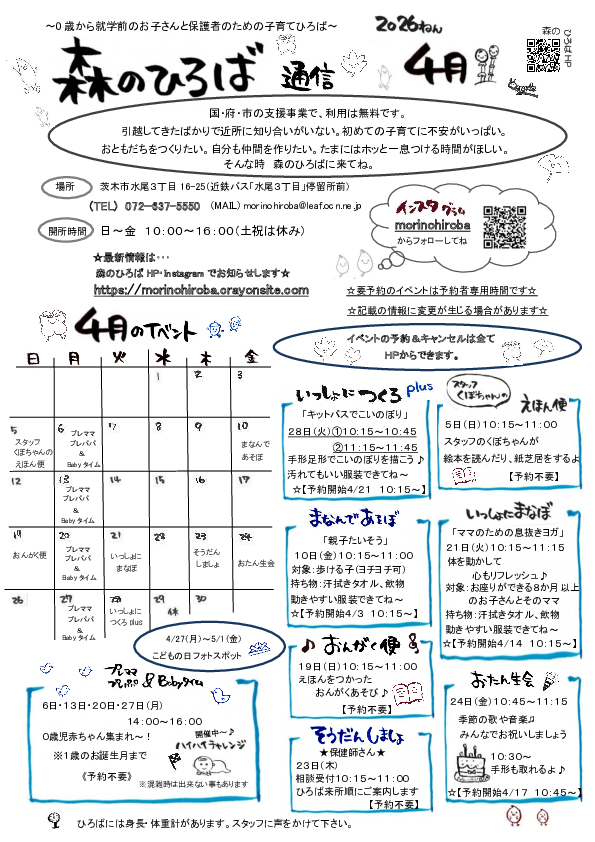 ～0歳から就学前のお子さんと保護者のための子育てひろば～
森のひろば 通信
2026ねん
4月
森の
ひろばHP
国・府・市の支援事業で、利用は無料です。
引越してきたばかりで近所に知り合いがいない。初めての子育てに不安がいっぱい。
おともだちをつくりたい。自分も仲間を作りたい。たまにはホッと一息つける時間がほしい。
そんな時 森のひろばに来てね。
場所 茨木市水尾3丁目16-25(近鉄バス「水尾3丁目」停留所前)
(TEL) 072-637-5550 (MAIL) morinohiroba@leaf.ocn.ne.jp
開所時間 日～金 10:00～16:00(土祝は休み)
インスタグラム
morinohiroba
からフォローしてね
★最新情報は・・・
森のひろば HP・instagram でお知らせします☆
https://morinohiroba.crayonsite.com
☆要予約のイベントは予約者専用時間です☆
☆記載の情報に変更が生じる場合があります☆
イベントの予約&キャンセルは全て
HPからできます。
4月のイベント
日 月 火 水 木 金
1 2 3
5 6 7 8 9 10
スタッフ
くぼちゃんの
えほん便
プレママ
プレパパ
&
Babyタイム
まなんで
あそぼ
12 13 14 15 16 17
プレママ
プレパパ
&
Babyタイム
19 20 21 22 23 24
おんがく便
プレママ
プレパパ
&
Babyタイム
いっしょに
まなぼ
そうだん
しましょ
おたん生会
26 27 28 29 30
プレママ
プレパパ
&
Babyタイム
いっしょに
つくろplus
休
4/27(月)～5/1(金)
こどもの日フォトスポット
いっしょにつくろplus
「キットパスでこいのぼり」
28日(火)①10:15～10:45
②11:15～11:45
手形足形でこいのぼりを描こう♪
汚れてもいい服装できてね～
☆【予約開始4/21 10:15～】
スタッフ
くぼちゃんの
えほん便
5日(日)10:15～11:00
スタッフのくぼちゃんが
絵本を読んだり、紙芝居をするよ
【予約不要】
まなんであそぼ
「親子たいそう」
10日(金)10:15～11:00
対象:歩ける子(ヨチヨチ可)
持ち物:汗拭きタオル、飲物
動きやすい服装できてね～
☆【予約開始4/3 10:15～】
いっしょにまなぼ
「ママのための息抜きヨガ」
21日(火)10:15～11:15
体を動かして
心もリフレッシュ♪
対象:お座りができる8か月以上
のお子さんとそのママ
持ち物:汗拭きタオル、飲物
動きやすい服装できてね～
☆【予約開始4/14 10:15～】
♪おんがく便
19日(日)10:15～11:00
えほんをつかった
おんがくあそび♪
【予約不要】
そうだんしましょ
★保健師さん★
23日(木)
相談受付10:15～11:00
ひろば来所順にご案内します
【予約不要】
おたん生会
24日(金)10:45～11:15
季節の歌や音楽♫
みんなでお祝いしましょう
10:30～
手形も取れるよ♪
☆【予約開始4/17 10:45～】
プレママ
プレパパ &Babyタイム
6日・13日・20日・27日(月)
14:00～16:00
0歳児赤ちゃん集まれ～!
※1歳のお誕生月まで
《予約不要》
開催中～♪
ハイハイチャレンジ
※混雑時は出来ない事もあります
ひろばには身長・体重計があります。スタッフに声をかけて下さい。